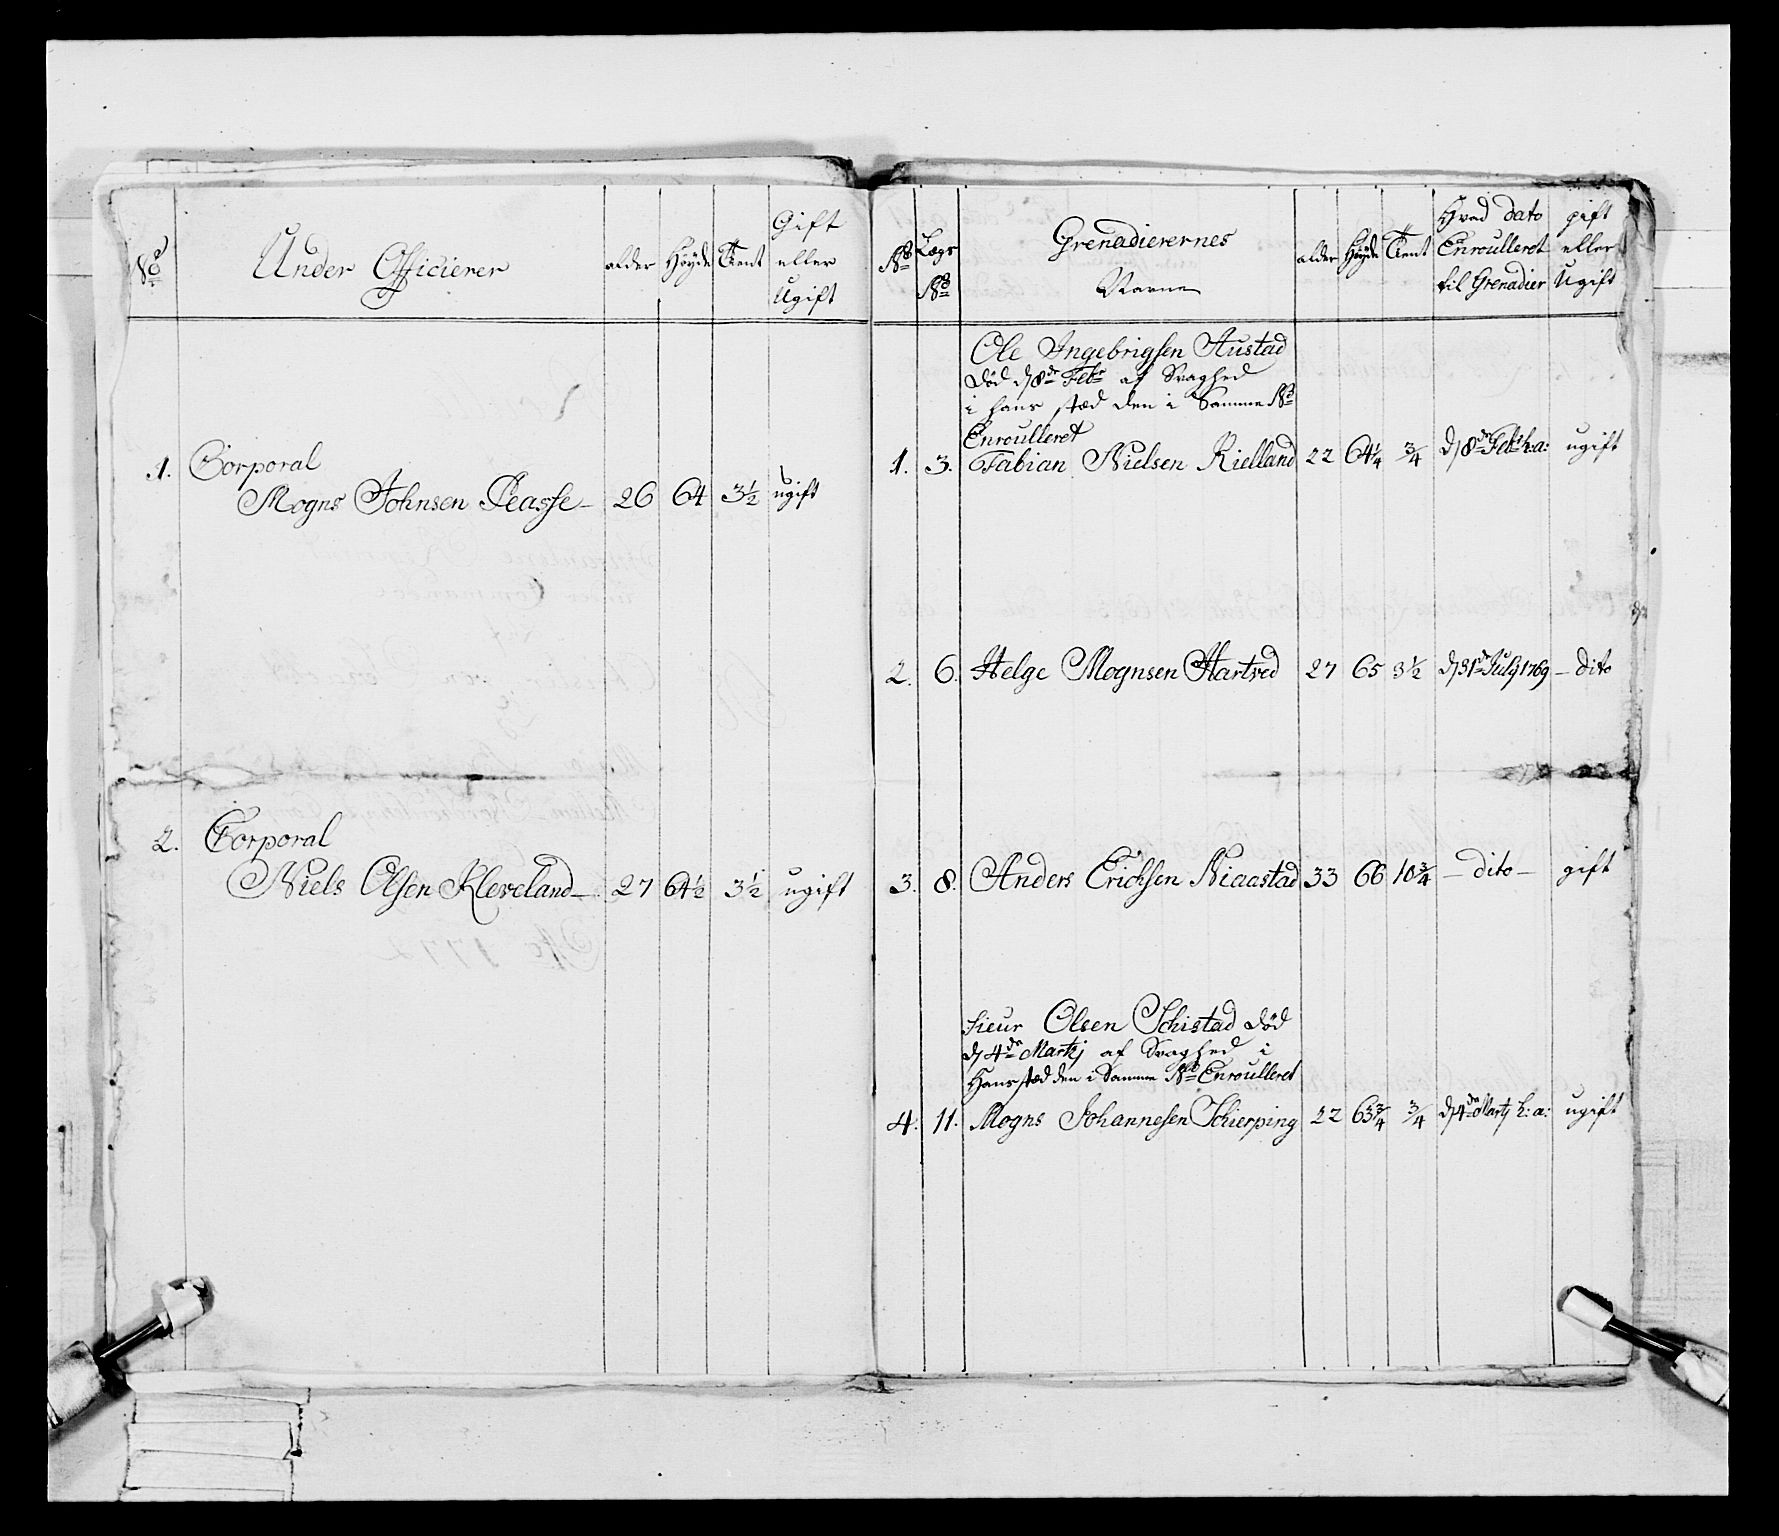 No
Under Officierer
alder
Høyde
Tient
Gift
eller
Ugift
1. Corporal
Mogns Johnsen Aasse – 26 64 3½ ugift
2. Corporal
Niels Olsen Kleveland – 27 64½ 3½ ugift
No
Lægs
No
Grenadierernes
Navne
alder
Høyde
Tient
Hvad dato
Enroulleret
til Grenadier
gift
eller
Ugift
Ole Ingebrigsen Austad
død d 8de Febr af Svaghed
i hans stæd den i Samme No
Enroulleret
1. 3. Fabian Nielsen Rielland 22 64¼ ¾ d 8de Febr h: a: ugift
2. 6. Helge Mognsen Hartved 27 65 3½ d 31de July 1769 – dito
3. 8. Anders Ericksen Niaastad 33 66 10¾ – dito – gift
Sieur Olsen Schistad død
d 4de Martj af Svaghed i
Hans stæd den i Samme No Enroulleret
4. 11. Mogns Johannesen Schierping 22 63¾ ¾ d 4de Martj h: a: ugift